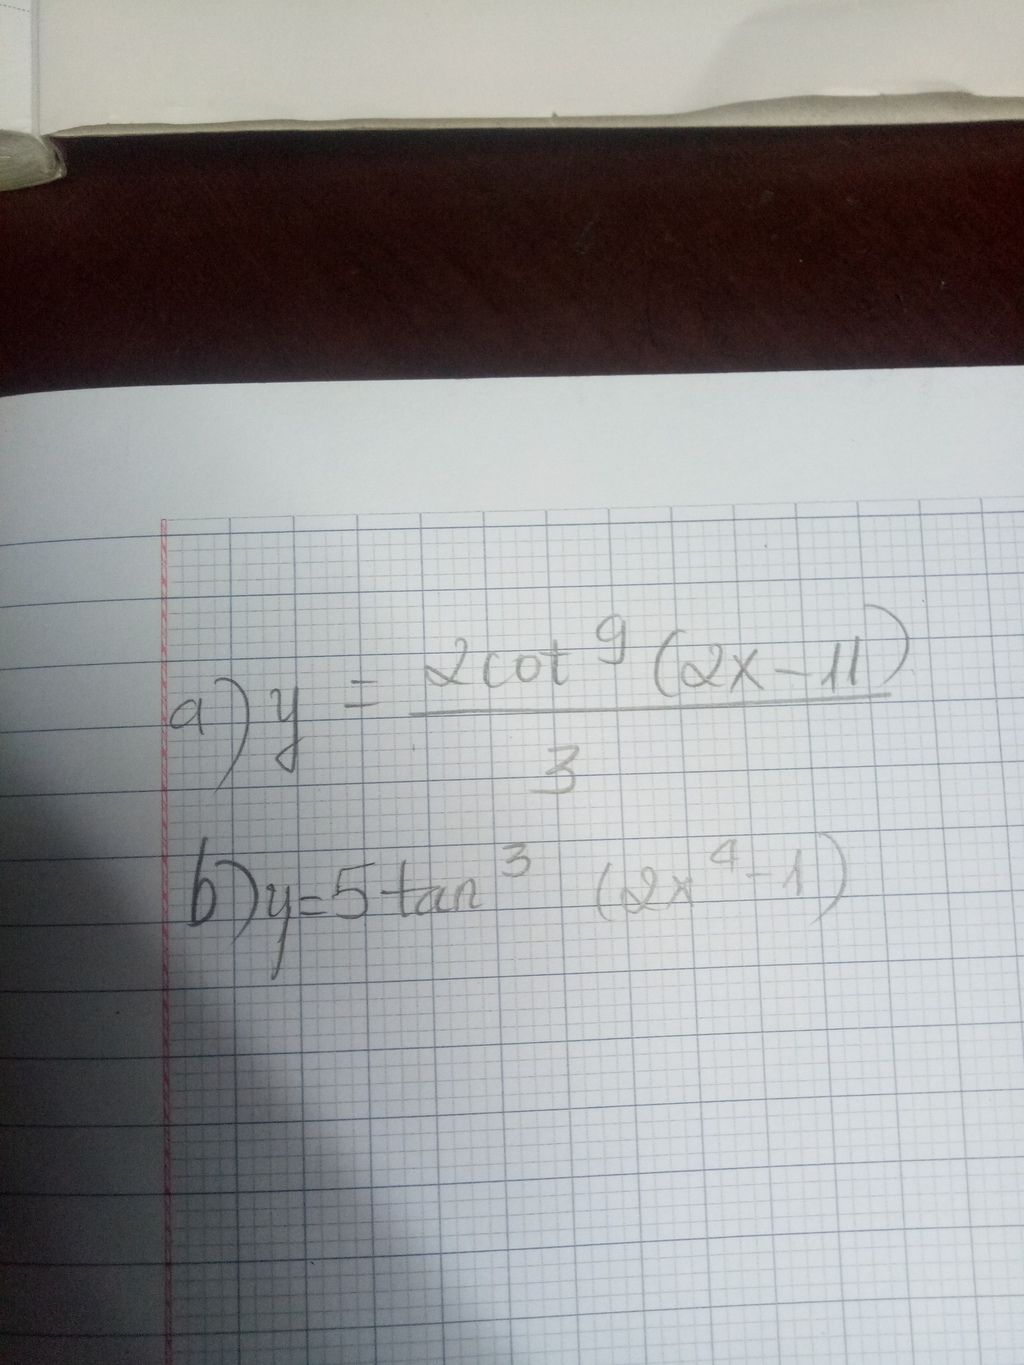 a) y = 2cot⁹ (2x - 11)
3
b) y = 5 tan³ (2x⁴ - 1)